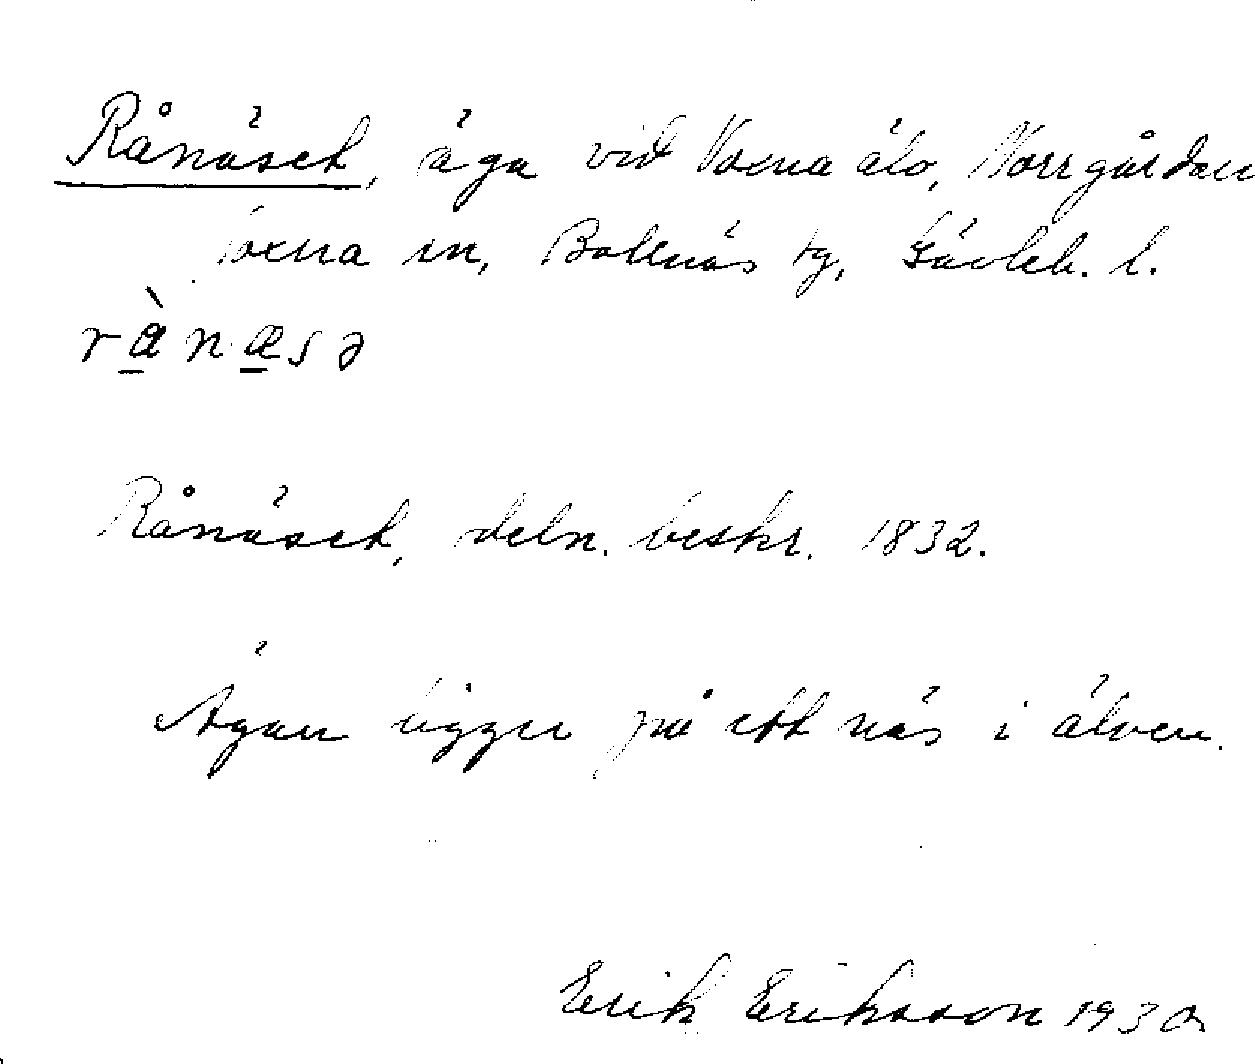 Rånäset, äga vid Voxna älv, Norrgården
Voxna sn, Bollnäs tg, Gävleb. l.
rànæsə
Rånäset, deln. beskr. 1832.
Ägan ligger på ett näs i älven.
Erik Eriksson 1930